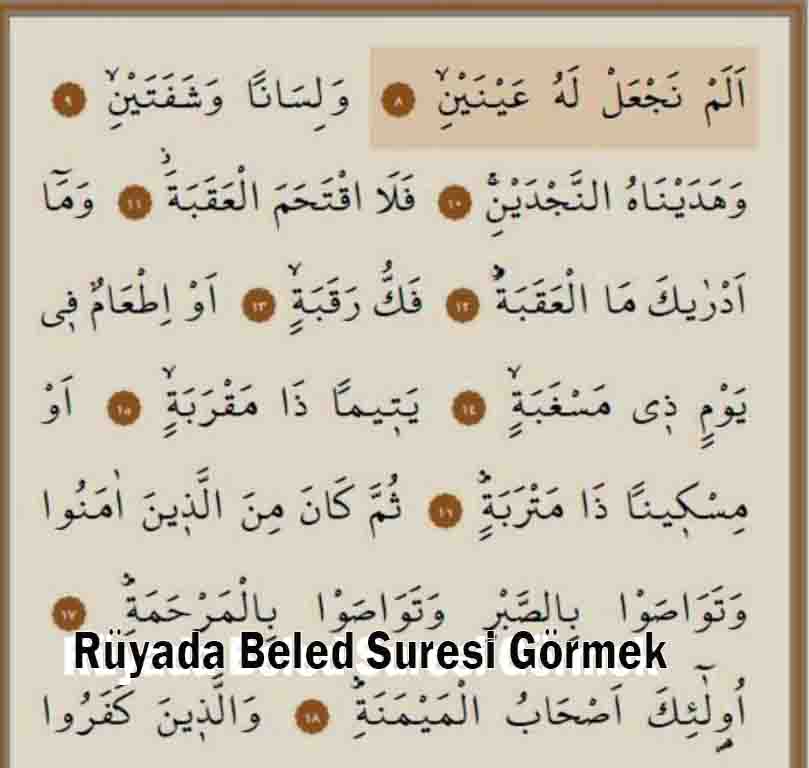 اَلَمْ نَجْعَلْ لَهُ عَيْنَيْنِۙ ﴿٨﴾ وَلِسَانًا وَشَفَتَيْنِۙ ﴿٩﴾
وَهَدَيْنَاهُ النَّجْدَيْنِۚ ﴿١٠﴾ فَلَا اقْتَحَمَ الْعَقَبَةَۘ ﴿١١﴾ وَمَٓا
اَدْرٰيكَ مَا الْعَقَبَةُۜ ﴿١٢﴾ فَكُّ رَقَبَةٍۙ ﴿١٣﴾ اَوْ اِطْعَامٌ ف۪ي
يَوْمٍ ذ۪ي مَسْغَبَةٍۙ ﴿١٤﴾ يَت۪يمًا ذَا مَقْرَبَةٍۙ ﴿١٥﴾ اَوْ
مِسْك۪ينًا ذَا مَتْرَبَةٍۜ ﴿١٦﴾ ثُمَّ كَانَ مِنَ الَّذ۪ينَ اٰمَنُوا
وَتَوَاصَوْا بِالصَّبْرِ وَتَوَاصَوْا بِالْمَرْحَمَةِۜ ﴿١٧﴾
Rüyada Beled Suresi Görmek
اُو۬لٰٓئِكَ اَصْحَابُ الْمَيْمَنَةِۜ ﴿١٨﴾ وَالَّذ۪ينَ كَفَرُوا